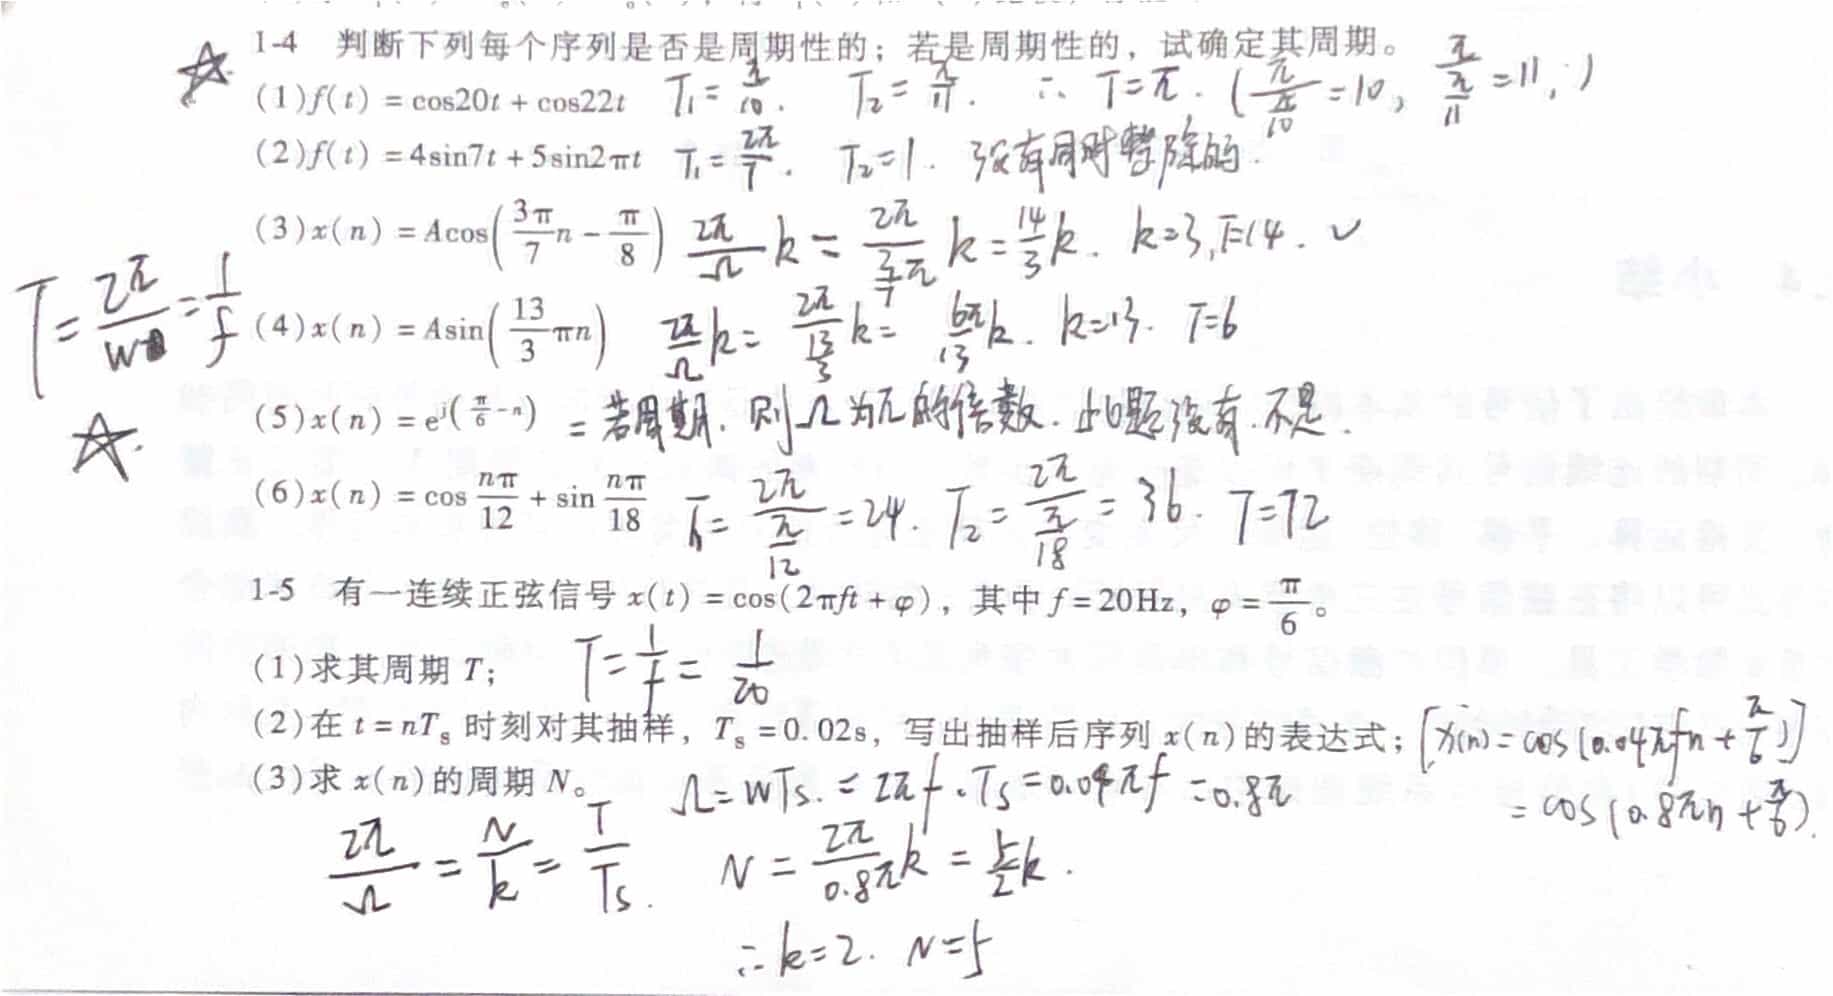 1-4 判断下列每个序列是否是周期性的；若是周期性的，试确定其周期。
(1) f(t) = cos20t + cos22t T₁ = π/10. T₂ = π/11. ∴ T = π. (π/(π/10) = 10, π/(π/11) = 11, )
(2) f(t) = 4sin7t + 5sin2πt T₁ = 2π/7. T₂ = 1. 没有同时整除的.
(3) x(n) = Acos(3π/7 n - π/8) 2π/Ω k = 2π/(3/7 π) k = 14/3 k. k=3, T=14. ✓
T = 2π/w = 1/f
(4) x(n) = Asin(13/3 πn) 2π/Ω k = 2π/(13/3) k = 6π/13 k. k=13. T=6
(5) x(n) = e^j(π/6 - n) = 若周期, 则Ω为π的倍数. 此题没有. 不是.
(6) x(n) = cos nπ/12 + sin nπ/18 T₁ = 2π/(π/12) = 24. T₂ = 2π/(π/18) = 36. T=72
1-5 有一连续正弦信号 x(t) = cos(2πft + φ)，其中 f = 20Hz，φ = π/6。
(1) 求其周期 T； T = 1/f = 1/20
(2) 在 t = nTₛ 时刻对其抽样，Tₛ = 0.02s，写出抽样后序列 x(n) 的表达式； [x(n) = cos(0.04πfn + π/6)]
= cos(0.8πn + π/6).
(3) 求 x(n) 的周期 N。 Ω = wTs. = 2πf·Ts = 0.04πf = 0.8π
2π/Ω = N/k = T/Ts. N = 2π/0.8π k = 5/2 k.
∴ k=2. N=5